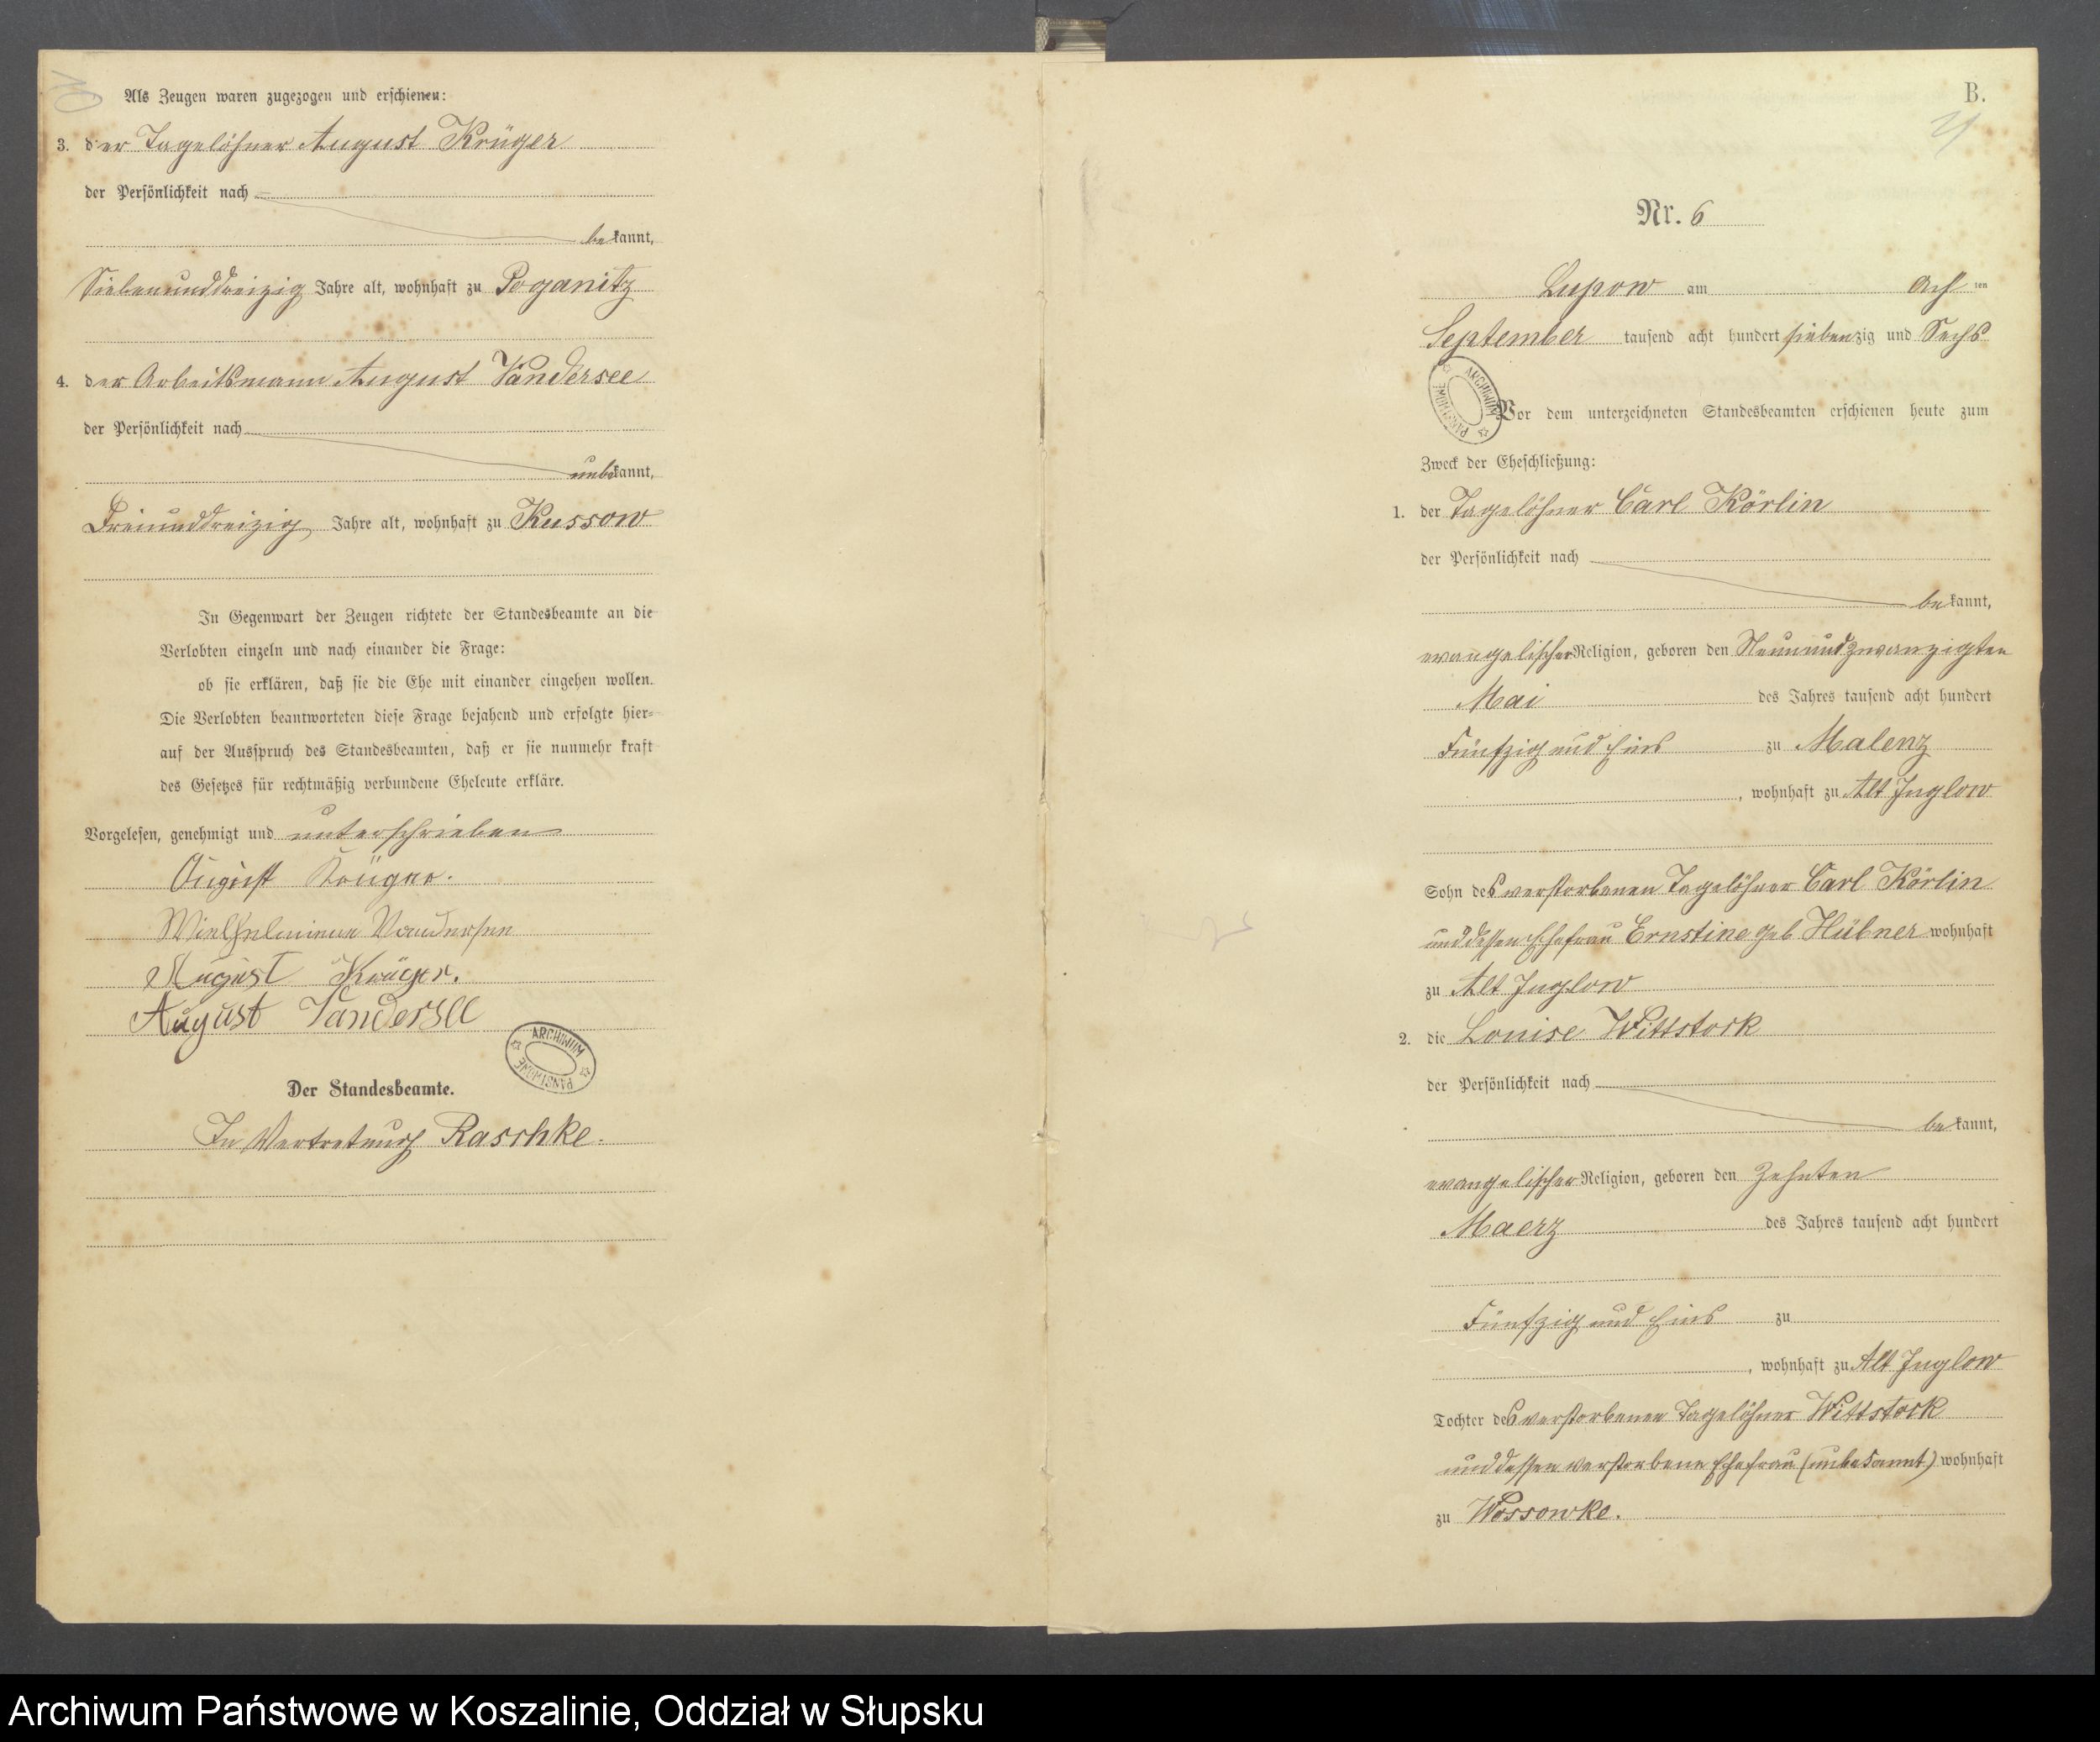 10
Als Zeugen waren zugezogen und erschienen:
3. der Tagelöhner August Krüger
der Persönlichkeit nach
bekannt,
Siebenunddreizig Jahre alt, wohnhaft zu Poganitz
4. der Arbeitsmann August Vandersee
der Persönlichkeit nach
unbekannt,
Dreiunddreizig Jahre alt, wohnhaft zu Kussow
In Gegenwart der Zeugen richtete der Standesbeamte an die
Verlobten einzeln und nach einander die Frage:
ob sie erklären, daß sie die Ehe mit einander eingehen wollen.
Die Verlobten beantworteten diese Frage bejahend und erfolgte hier-
auf der Ausspruch des Standesbeamten, daß er sie nunmehr kraft
des Gesetzes für rechtmäßig verbundene Eheleute erkläre.
Vorgelesen, genehmigt und unterschrieben
August Krüger.
Wielhelmiene Vandersee
August Krüger.
August Vandersee
ARCHIWUM PAŃSTWOWE
Der Standesbeamte.
In Vertretung Raschke.
B.
Nr. 6
Lupow am Acht ten
September tausend acht hundert siebenzig und Sechs
ARCHIWUM PAŃSTWOWE
Vor dem unterzeichneten Standesbeamten erschienen heute zum
Zweck der Eheschließung:
1. der Tagelöhner Carl Körlin
der Persönlichkeit nach
bekannt,
evangelischer Religion, geboren den Neunundzwanzigten
Mai des Jahres tausend acht hundert
Fünfzig und Eins zu Malenz
, wohnhaft zu Alt Juglow
Sohn des verstorbenen Tagelöhner Carl Körlin
und dessen Ehefrau Ernstine geb Hübner wohnhaft
zu Alt Juglow
2. die Louise Wittstock
der Persönlichkeit nach
bekannt,
evangelischer Religion, geboren den Zehnten
Maerz des Jahres tausend acht hundert
Fünfzig und Eins zu
, wohnhaft zu Alt Juglow
Tochter des verstorbenen Tagelöhner Wittstock
und dessen verstorbene Ehefrau (unbekannt) wohnhaft
zu Wossowke.
Archiwum Państwowe w Koszalinie, Oddział w Słupsku